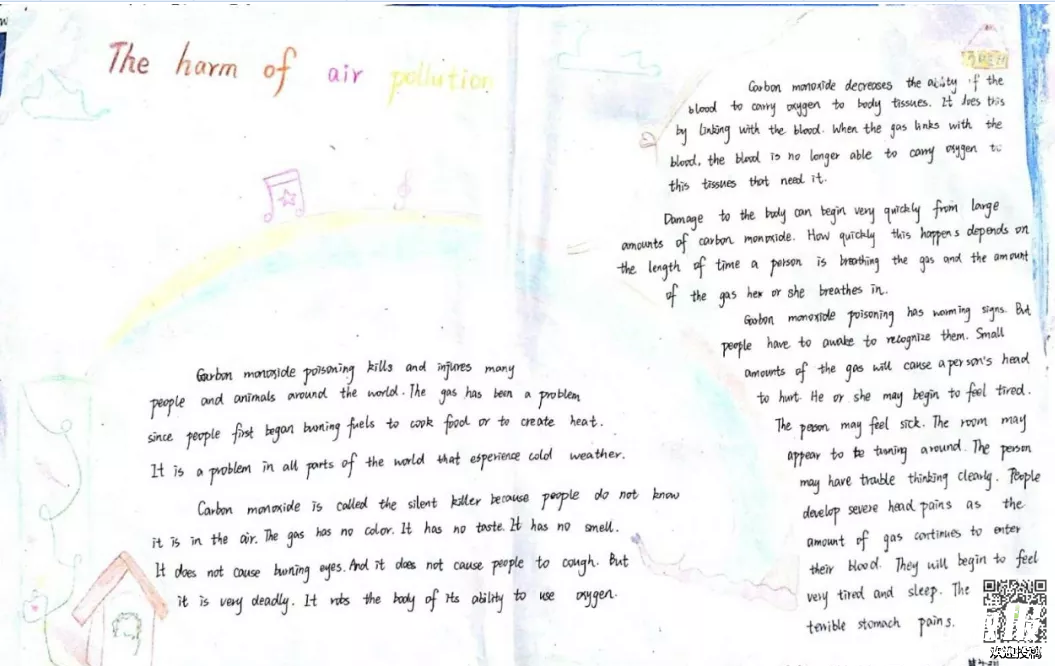 The harm of air pollution
Carbon monoxide poisoning kills and injures many
people and animals around the world. The gas has been a problem
since people first began burning fuels to cook food or to create heat.
It is a problem in all parts of the world that esperience cold weather.
Carbon monoxide is called the silent killer because people do not know
it is in the air. The gas has no color. It has no taste. It has no smell.
It does not cause burning eyes. And it does not cause people to cough. But
it is very deadly. It robs the body of its ability to use oxygen.
Carbon monoxide decreases the ability of the
blood to carry oxygen to body tissues. It does this
by linking with the blood. When the gas links with the
blood, the blood is no longer able to carry oxygen to
this tissues that need it.
Damage to the body can begin very quickly from large
amounts of carbon monoxide. How quickly this happens depends on
the length of time a person is breathing the gas and the amount
of the gas her or she breathes in.
Carbon monoxide poisoning has warming signs. But
people have to awake to recognize them. Small
amounts of the gas will cause a person's head
to hurt. He or she may begin to feel tired.
The person may feel sick. The room may
appear to be turning around. The person
may have trouble thinking clearly. People
develop severe head pains as the
amount of gas continues to enter
their blood. They will begin to feel
very tired and sleep. The
terrible stomach pains.